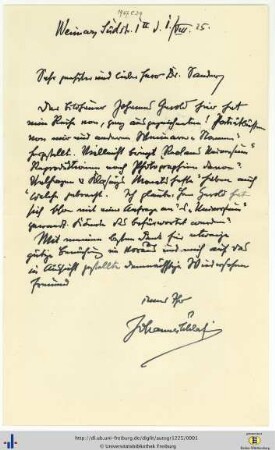 Weimar, Südstr. 1 II d. 1/VIII. 25.
Sehr geehrter und lieber Herr Dr. Sander,
Der Bildhauer Johannes Gerold hier hat
eine Reihe von, ganz ausgezeichneten! Porträtbüsten
von mir und anderen Weimarer
hergestellt. Vielleicht bringt Reclams Universum
Reproduktionen nach Photographien davon?
Velhagen & Klasings Monatshefte haben auch
welche gebracht. Ich glaube, Herr Gerold hat
sich schon mit einer Anfrage an's "Universum"
gewandt. Könnte das befürwortet werden?
Mit meinem besten Dank für etwaige
gütige Bemühung im Voraus und mich auf das
in Aussicht gestellte Wiedersehen
freuend
immer Ihr
Johannes Schlaf
http://dl.ub.uni-freiburg.de/diglit/autogr1272/0001
© Universitätsbibliothek Freiburg